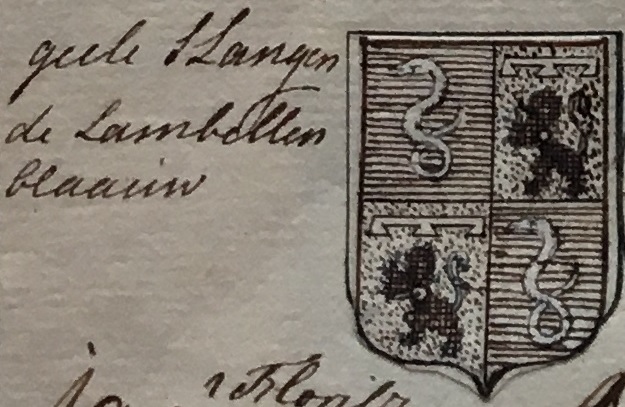 geele Slangen
de Lambellen
blaauw